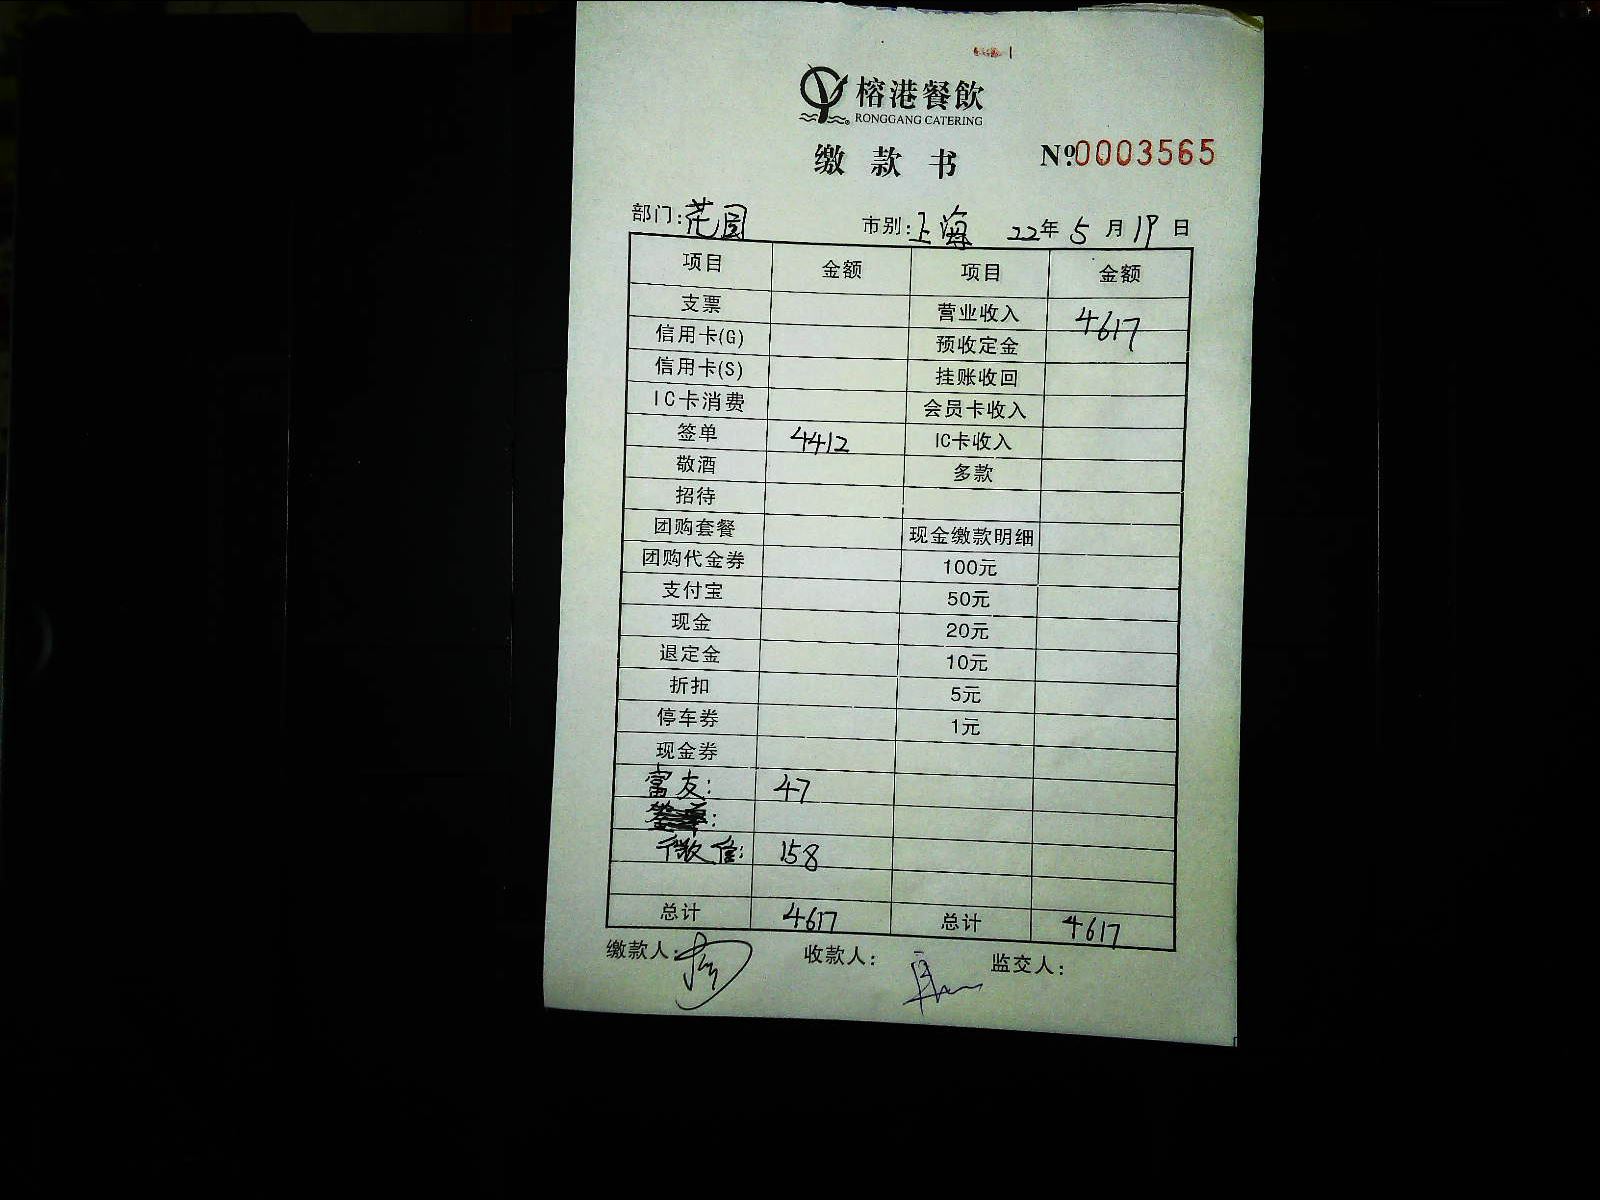 榕港餐飲
RONGGANG CATERING
缴款书 Nº0003565
部门:花园 市别:上海 22年5月19日
项目 金额 项目 金额
支票 营业收入 4617
信用卡(G) 预收定金
信用卡(S) 挂账收回
IC卡消费 会员卡收入
签单 4412 IC卡收入
敬酒 多款
招待
团购套餐 现金缴款明细
团购代金券 100元
支付宝 50元
现金 20元
退定金 10元
折扣 5元
停车券 1元
现金券
富友: 47
:
微信: 158
总计 4617 总计 4617
缴款人: 收款人: 监交人: